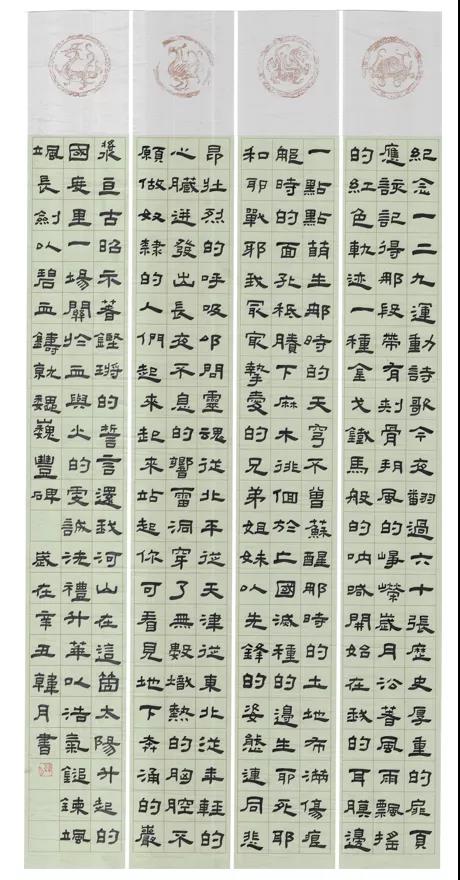 紀念一二九運動詩歌今夜翻過六十張歷史厚重的扉頁
應該記得那段帶有刺骨朔風的崢嶸歲月沿著風雨飄搖
的紅色軌迹一種金戈鐵馬般的吶喊開始在我的耳膜邊
一點點萌生那時的天穹不曾蘇醒那時的土地布滿傷痕
那時的面孔秖賸下麻木徘徊於亡國滅種的邊生耶死耶
和耶戰耶我冣冣摯愛的兄弟姐妹以先鋒的姿態連同悲
昂壯烈的呼吸叩問靈魂從北平從天津從東北從年輕的
心臟迸發出長夜不息的響雷洞穿了無數熾熱的胸腔不
願做奴隸的人們起來起來站起你可看見地下奔涌的巖
漿亘古昭示著鏗鏘的誓言還我河山在這箇太陽升起的
國度里一場關於血與火的虔誠洗禮升華以浩氣鎚鍊颯
颯長劍以碧血鑄就巍巍豐碑 歲在辛丑韓月書